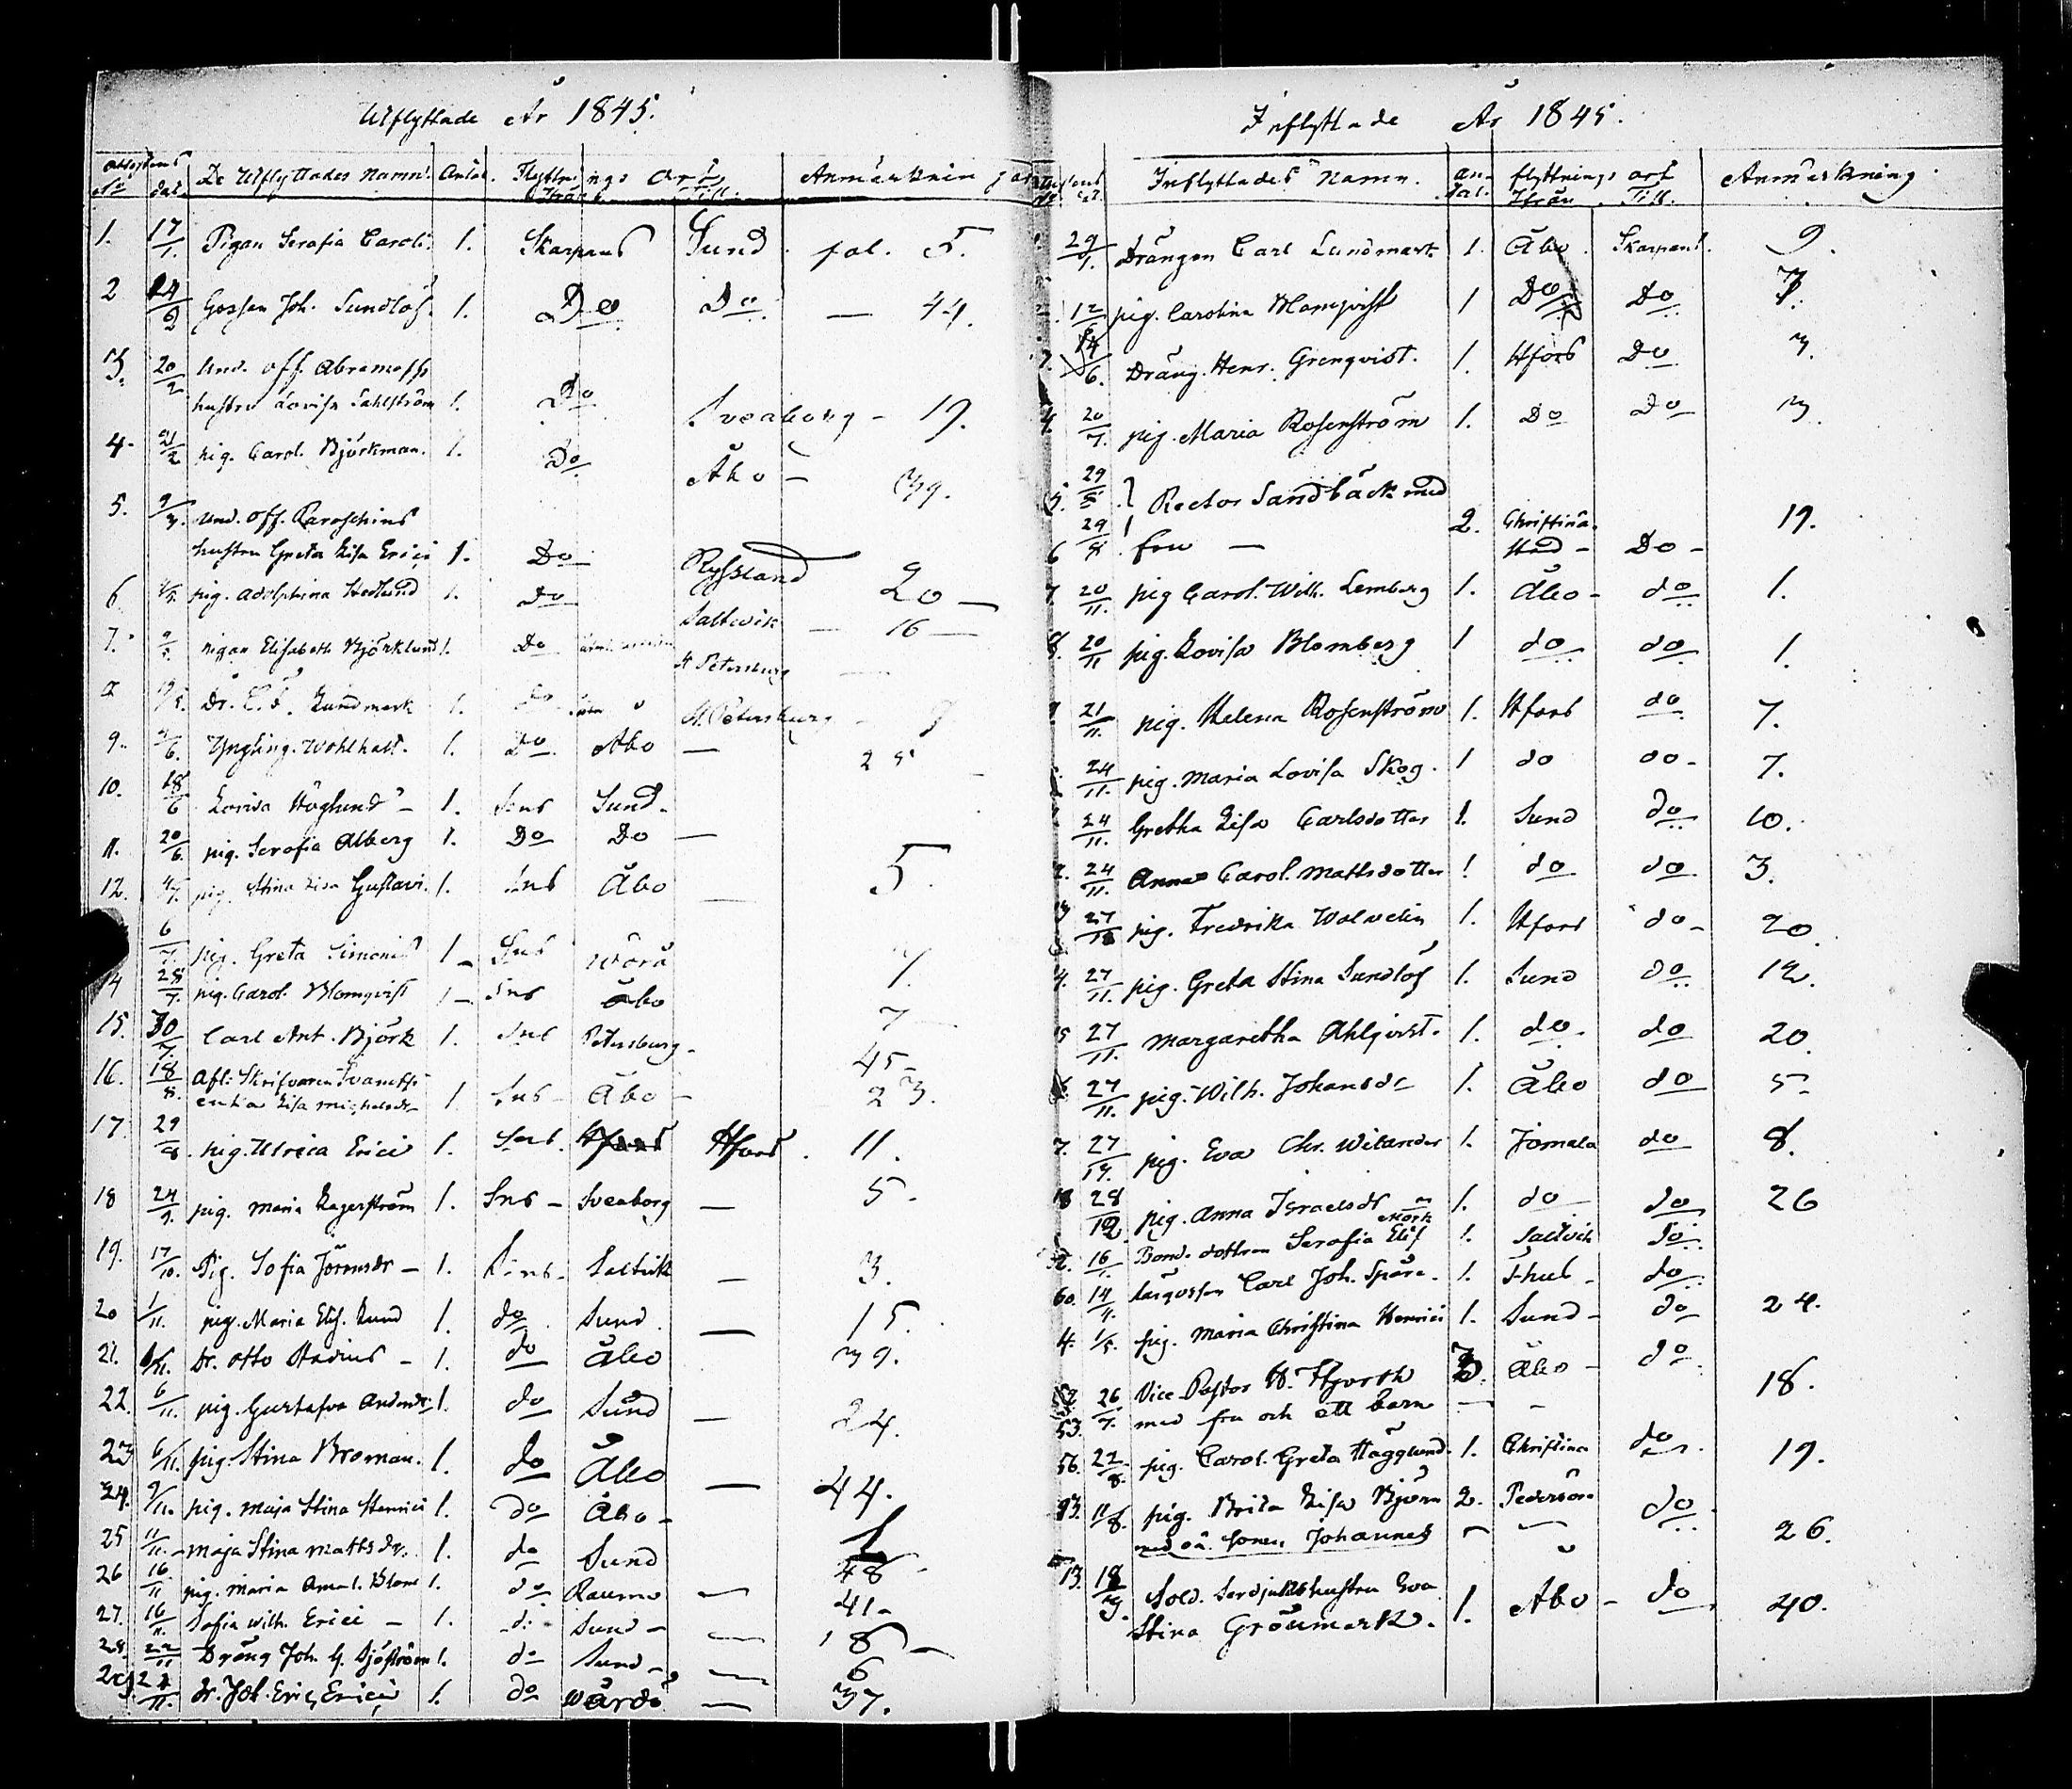 Utflyttade År 1845.
De Utflyttades Namn. Antal. Flyttnings Ort Anmärkningar
No dat. Från Till
1. 17/1. Pigan Serafia Caroli. 1. Skarpans Sund fol. 5.
2 24/2 Gossen Joh. Sundlöf. 1. Do Do — 44.
3. 20/2 Und. off.
hustru Lovisa Sahlström 1. Do Sveaborg - 19.
4. 21/2 pig. Carol. Björkman. 1. Do Åbo - 39.
5. 9/3. Und. Off.
hustru Greta Lisa Erici 1. Do Ryssland 20 —
6 pig. Adolphina Hedlund 1. Do Saltvik — 16 —
7. pigan Elisabeth Björklund 1. Do St Petersburg —
Dr. C. Lundmark 1. Do St. Petersburg - 9
9. Yngling. Wohlhatt. 1. Do Åbo — 25
10. 18/6 Lovisa Höglund - 1. Sns Sund.
11. 20/6. pig. Serafia Alberg 1. Do Do —
12. 4/7. pig. Stina Lisa Gustavi. 1. Sns Åbo — 5.
6/7. pig. Greta Simonis 1 - Sns Wörå 7.
14 28/7. pig. Carol. Blomqvist 1 - Sns Åbo 7
15. 30/7. Carl Ant. Björk 1. Sns Petersburg - 45-
16. 18/8. Afl: Skrifvaren
enka Lisa Michelsdr 1. Sns - Åbo - 23.
17. 29/8. pig. Ulrica Erici 1. Sns. Hfors Hfors. 11.
18 24/9. pig. Maria Lagerström 1. Sns - Sveaborg — 5.
19. 17/10. Pig. Sofia Jörnsdr - 1. Sns - Saltvik — 3.
20 1/11. pig. Maria Elis. Lund 1. do Sund. — 15.
21. 6/11. Dr. Otto Stadius - 1. do Åbo 39.
22. 6/11. pig. Gustafva Andersdr. 1. do Sund — 24.
23 6/11. pig. Stina Broman. 1. do Åbo — 44.
24. 9/11. pig. Maja Stina Henrici 1. do Åbo - 1
25 11/11. Maja Stina Mattsdr. 1. do Sund 48
26 16/11 pig. Maria Amal. Blom 1. do Raumo — 41-
27. 16/11. Sofia Wilh. Erici - 1. do Sund - — 18 -
28. 22/11 Dräng Joh. G. Sjöström 1. do Sund - — 6
29. 24/11. dr. Joh. Eric Erici 1. do Wårdö — 37.
Inflyttade År 1845.
Inflyttades Namn. Antal. flyttnings ort Anmärkning
Ifrån Till.
29/1. Drängen Carl Lundmark 1. Åbo. Skarpans. 9.
12 pig. Carolina Blomqvist 1 Do Do 7.
14/6. Dräng. Henr. Grenqvist. 1. Hfors Do 7.
4. 20/7. pig. Maria Rosenström 1. Do Do 3.
5. 29/8 Rector Sandbäck med
6 29/8 fru — 2. Christina- stad - Do - 19.
7. 20/11. pig Carol. Wilh. Lemberg 1. Åbo - do 1.
8. 20/11 pig. Lovisa Blomberg 1 do do 1.
21/11. pig. Helena Rosenström 1. Hfors do 7.
24/11. pig. Maria Lovisa Skog. 1 do do - 7.
24/11. Gretha Lisa Carlsdotter 1. Sund do 10.
2. 24/11. Anna Carol. Mattsdotter 1 do do 3.
27/11 pig. Fredrika Wolvelin 1. Hfors do - 20.
4. 27/11. pig. Greta Stina Sundlöf 1. Sund do 12.
5 27/11. Margaretha Ahlqvist. 1. do - do 20.
6 27/11. pig. Wilh. Johansdr 1. Åbo do 5-
7. 27/11. pig. Eva Chr. Wilander 1. Jomala do 8.
18 28/12 pig. Anna Israelsdr 1. do do 26
16/1. Bond. dottren Serafia Elis Mörk 1. Saltvik do
60. 14/4. Carl Joh. Spåre. 1. do
4. 1/5. pig. Maria Christina Henrici 1. Sund - do 24.
52 26/7. Vice Pastor H. Hjorth 3. Åbo - do
53. med fru och ett barn — - 18.
56. 22/8. pig. Carol. Greta Hägglund. 1. Christina do 19.
93. 11/8. pig. Brita Lisa Björn 2. Pedersöre do
med oä. sonen Johannes 26.
13. 18/9. Sold. hustru Eva
Stina Grönmark. 1. Åbo - do 40.